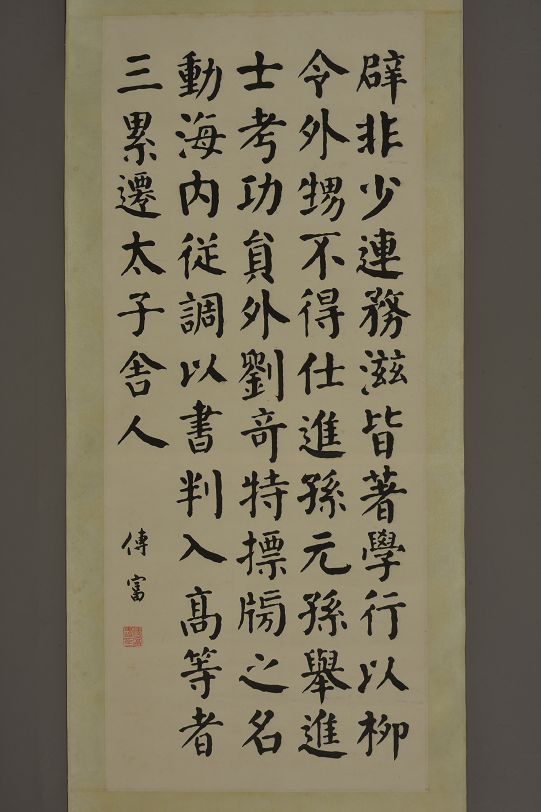 辟非少連務滋皆著學行以柳
令外甥不得仕進孫元孫舉進
士考功員外劉奇特摽牓之名
動海內從調以書判入高等者
三累遷太子舍人
傅富